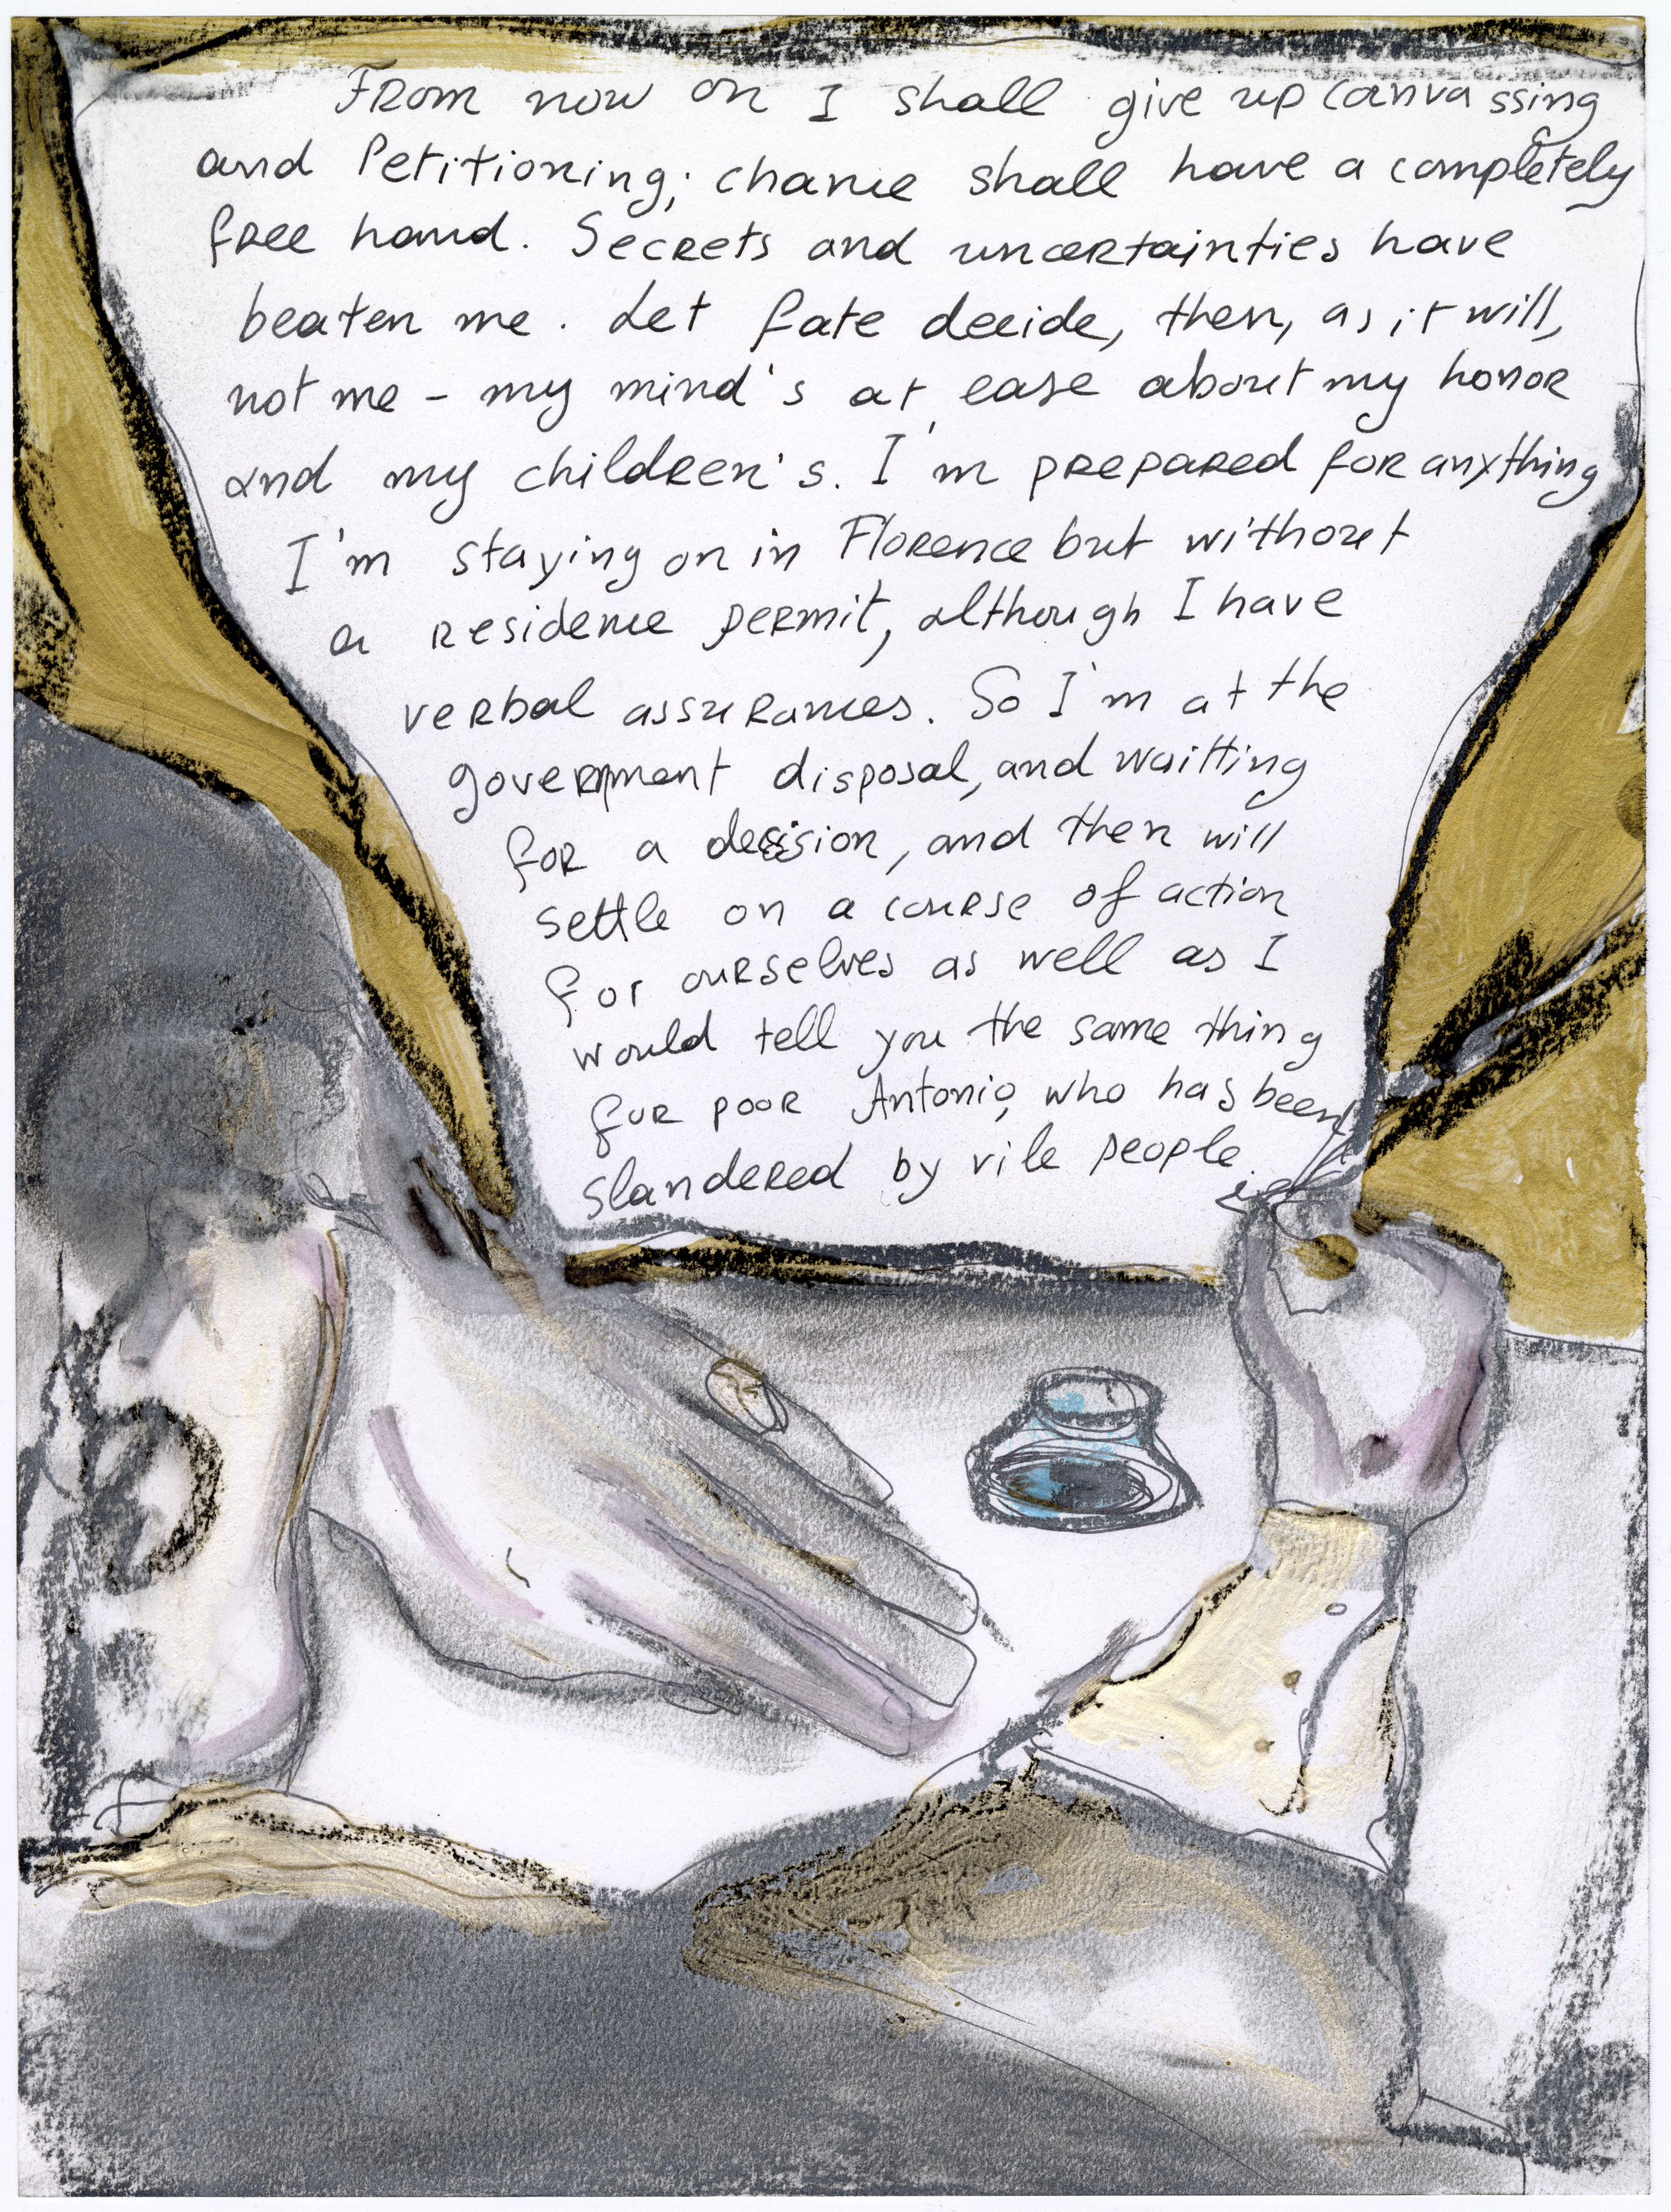 From now on I shall give up canvassing
and Petitioning; chance shall have a completely
free hand. Secrets and uncertainties have
beaten me. Let fate decide, then, as it will,
not me - my mind's at ease about my honor
and my children's. I'm prepared for anything
I'm staying on in Florence but without
a residence permit, although I have
verbal assurances. So I'm at the
government disposal, and waitting
for a decision, and then will
settle on a course of action
for ourselves as well as I
would tell you the same thing
for poor Antonio, who has been
slandered by vile people.